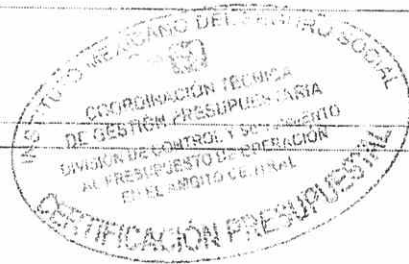 INSTITUTO MEXICANO DEL SEGURO SOCIAL
COORDINACIÓN TÉCNICA
DE GESTIÓN PRESUPUESTARIA
DIVISIÓN DE CONTROL Y SEGUIMIENTO
AL PRESUPUESTO DE OPERACIÓN
EN EL AMBITO CENTRAL
CERTIFICACIÓN PRESUPUESTAL